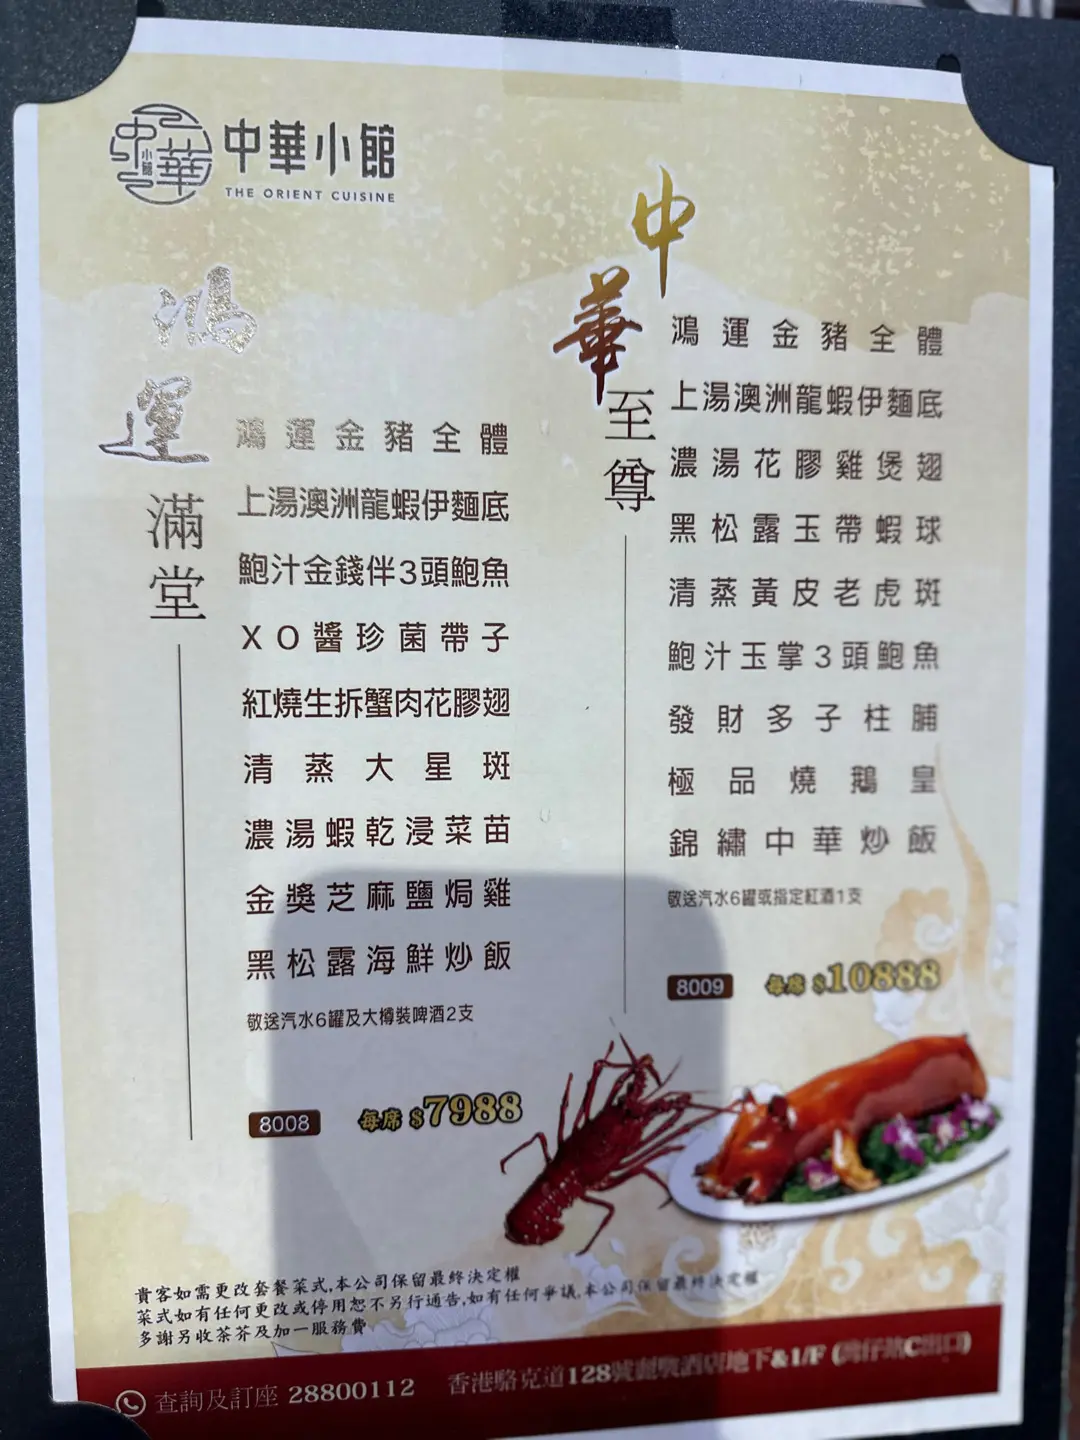 中華小館
THE ORIENT CUISINE
鴻運滿堂
鴻運金豬全體
上湯澳洲龍蝦伊麵底
鮑汁金錢伴3頭鮑魚
XO醬珍菌帶子
紅燒生拆蟹肉花膠翅
清蒸大星斑
濃湯蝦乾浸菜苗
金獎芝麻鹽焗雞
黑松露海鮮炒飯
敬送汽水6罐及大樽裝啤酒2支
8008 每席 $7988
中華至尊
鴻運金豬全體
上湯澳洲龍蝦伊麵底
濃湯花膠雞煲翅
黑松露玉帶蝦球
清蒸黃皮老虎斑
鮑汁玉掌3頭鮑魚
發財多子柱脯
極品燒鵝皇
錦繡中華炒飯
敬送汽水6罐或指定紅酒1支
8009 每席 $10888
貴客如需更改套餐菜式,本公司保留最終決定權
菜式如有任何更改或停用恕不另行通告,如有任何爭議,本公司保留最終決定權
多謝另收茶芥及加一服務費
查詢及訂座 28800112 香港駱克道128號酒店地下&1/F (灣仔站C出口)